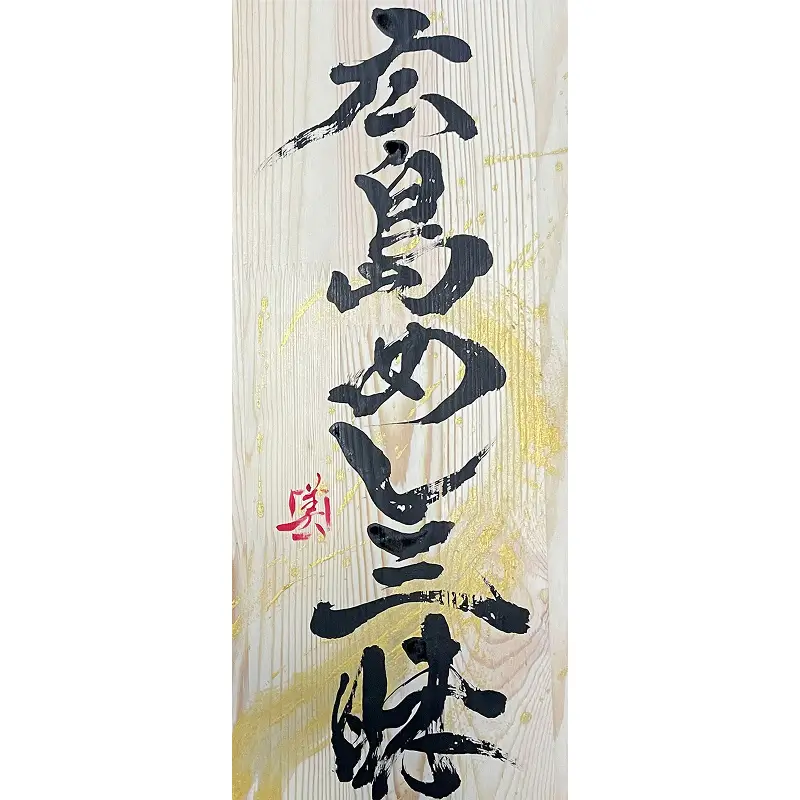 広島めし三昧
美